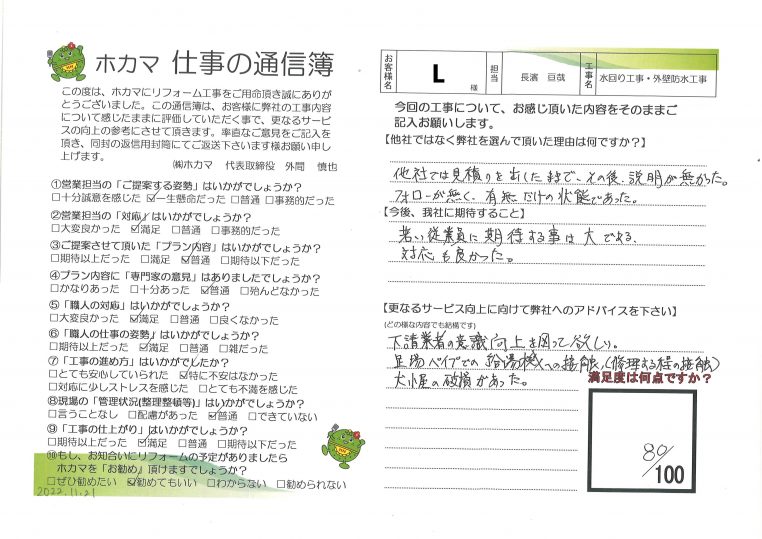 ホカマ 仕事の通信簿
この度は、ホカマにリフォーム工事をご用命頂き誠にありが
とうございました。この通信簿は、お客様に弊社の工事内容
について感じたままに評価していただく事で、更なるサービ
スの向上の参考にさせて頂きます。率直なご意見をご記入を
頂き、同封の返信用封筒にてご返送下さいます様お願い申し
上げます。
㈱ホカマ 代表取締役 外間 慎也
①営業担当の「ご提案する姿勢」はいかがでしょうか?
□十分誠意を感じた ☑一生懸命だった □普通 □事務的だった
②営業担当の「対応」はいかがでしょうか?
□大変良かった ☑満足 □普通 □事務的だった
③ご提案させて頂いた「プラン内容」はいかがでしょうか?
□期待以上だった □満足 ☑普通 □期待以下だった
④プラン内容に「専門家の意見」はありましたでしょうか?
□かなりあった □十分あった ☑普通 □殆んどなかった
⑤「職人の対応」はいかがでしょうか?
□大変良かった ☑満足 □普通 □良くなかった
⑥「職人の仕事の姿勢」はいかがでしょうか?
□期待以上だった ☑満足 □普通 □雑だった
⑦「工事の進め方」はいかがでしたか?
□とても安心していられた ☑特に不安はなかった
□対応に少しストレスを感じた □とても不満を感じた
⑧現場の「管理状況(整理整頓等)」はいかがでしょうか?
□言うことなし □配慮があった ☑普通 □できていない
⑨「工事の仕上がり」はいかがでしょうか?
□期待以上だった ☑満足 □普通 □期待以下だった
⑩もし、お知合いにリフォームの予定がありましたら
ホカマを「お勧め」頂けますでしょうか?
□ぜひ勧めたい ☑勧めてもいい □わからない □勧められない
2022.11.21
お客様名 L 様 担当 長濱 亘哉 工事名 水回り工事・外壁防水工事
今回の工事について、お感じ頂いた内容をそのままご
記入お願いします。
【他社ではなく弊社を選んで頂いた理由は何ですか?】
他社では見積りを出したままで、その後、説明が無かった。
フォローが無く、有無だけの状態であった。
【今後、我社に期待すること】
若い従業員に期待する事は大である、
対応も良かった。
【更なるサービス向上に向けて弊社へのアドバイスを下さい】
(どの様な内容でも結構です)
下請業者の意識向上を図って欲しい。
足場パイプでの給湯機への接触、(修理する程の接触)
犬小屋の破損があった。
満足度は何点ですか?
80/100